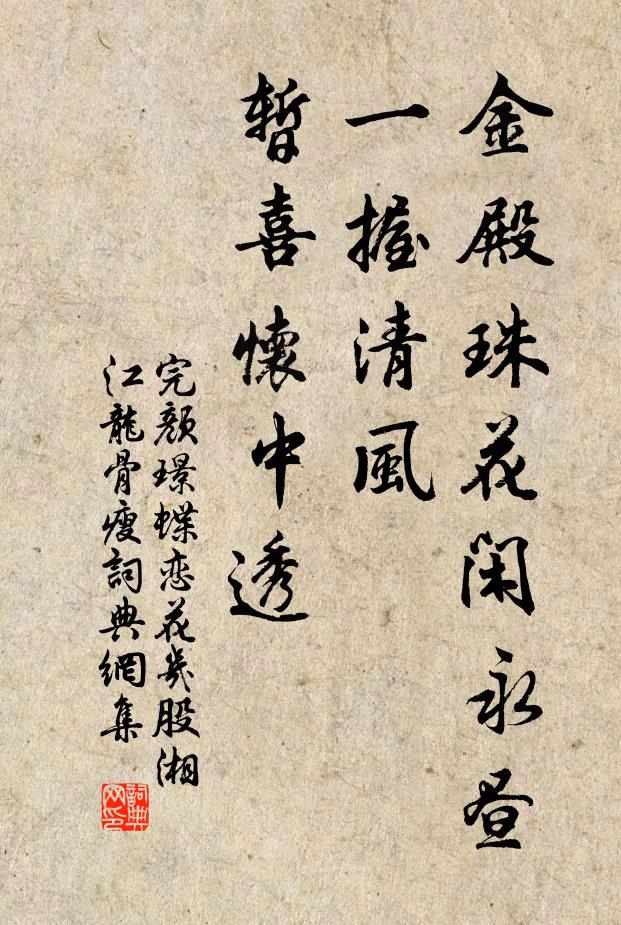 金殿珠花閑永昼
一握清風
暫喜懷中透
完顏璟蝶恋花幾股湘
江龍骨瘦詞典網集
詞典
网印